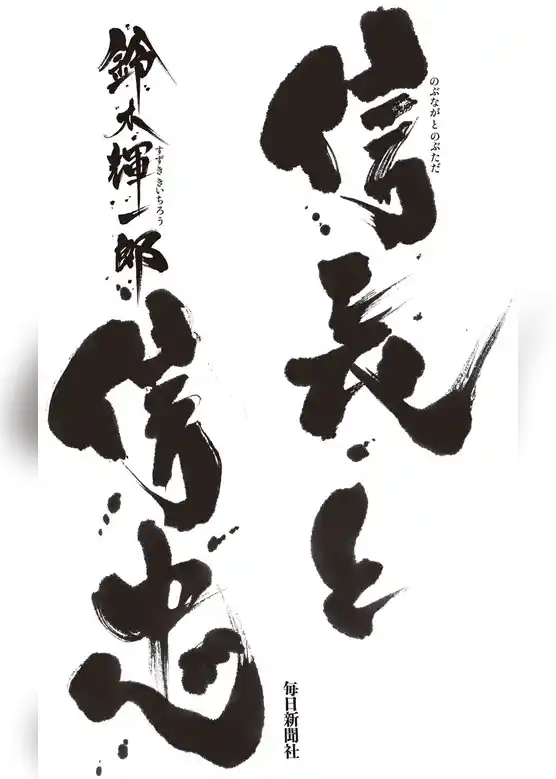 信長と
のぶながとのぶただ
信忠
鈴木輝一郎
すずききいちろう
毎日新聞社